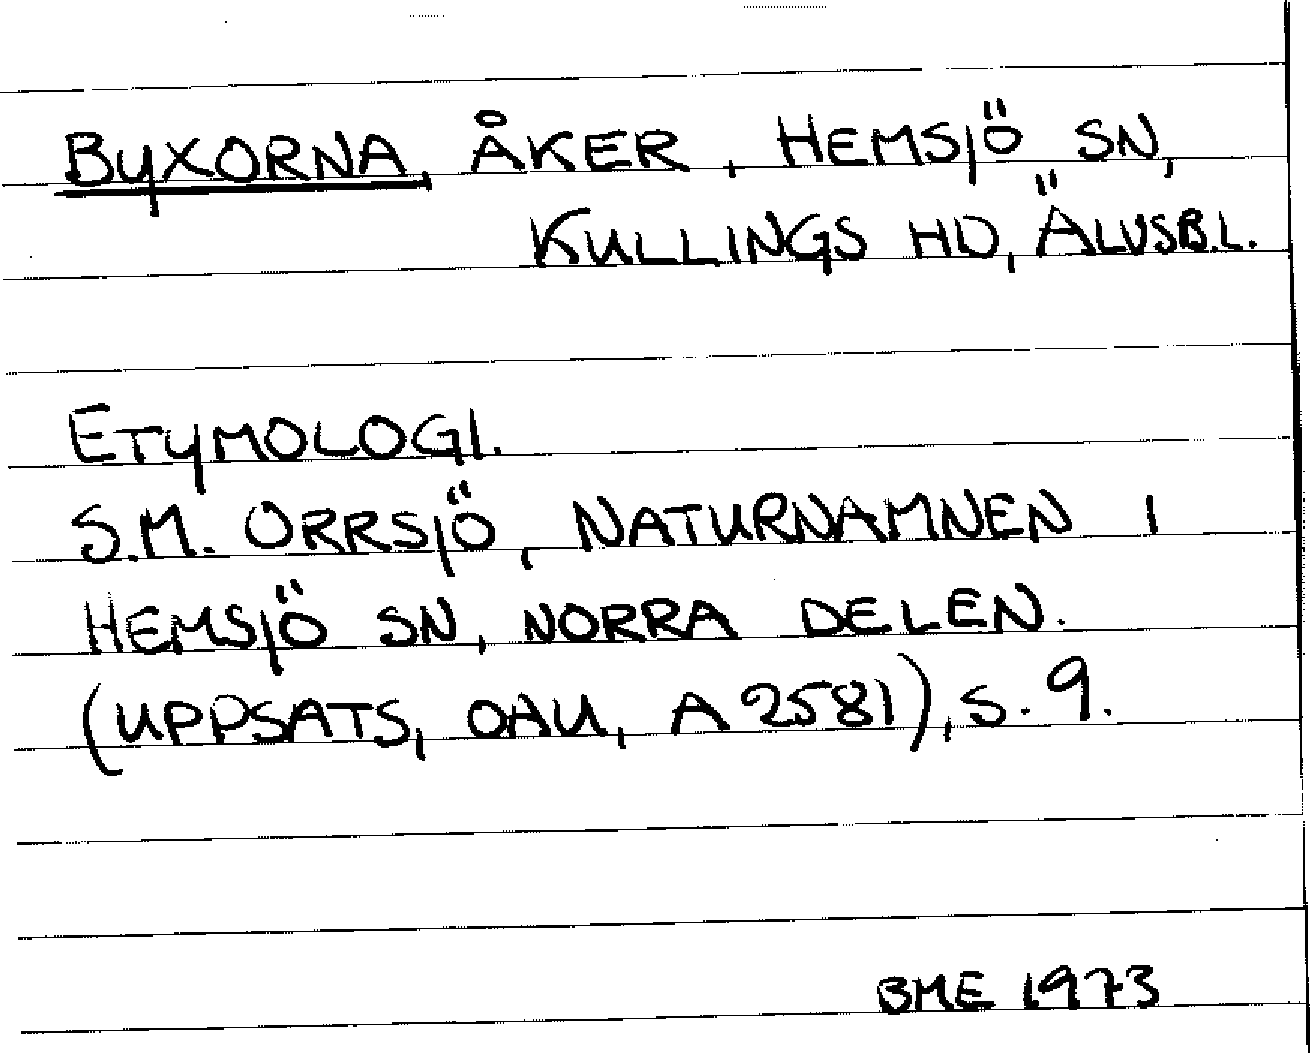 BYXORNA, ÅKER, HEMSJÖ SN,
KULLINGS HD, ÄLVSB.L.
ETYMOLOGI.
S.M. ORRSJÖ, NATURNAMNEN I
HEMSJÖ SN, NORRA DELEN.
(UPPSATS, OAU, A 2581), S. 9.
BME 1973